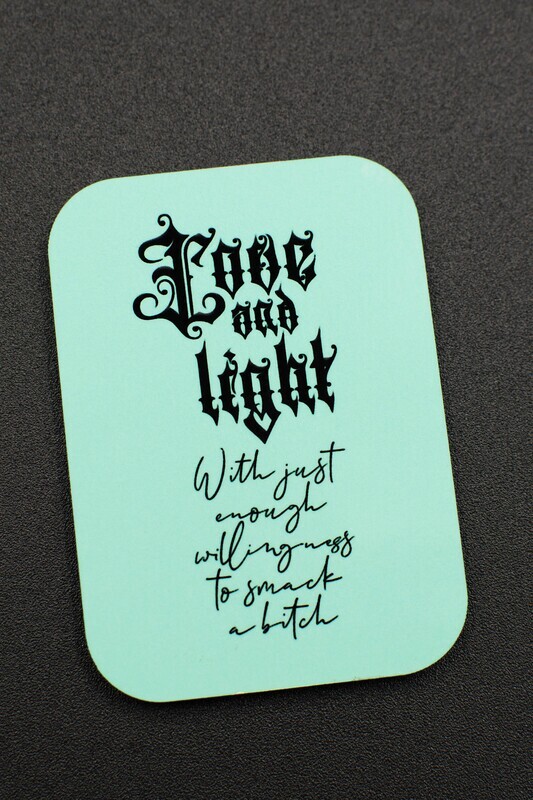 Love
and
light
With just
enough
willingness
to smack
a bitch